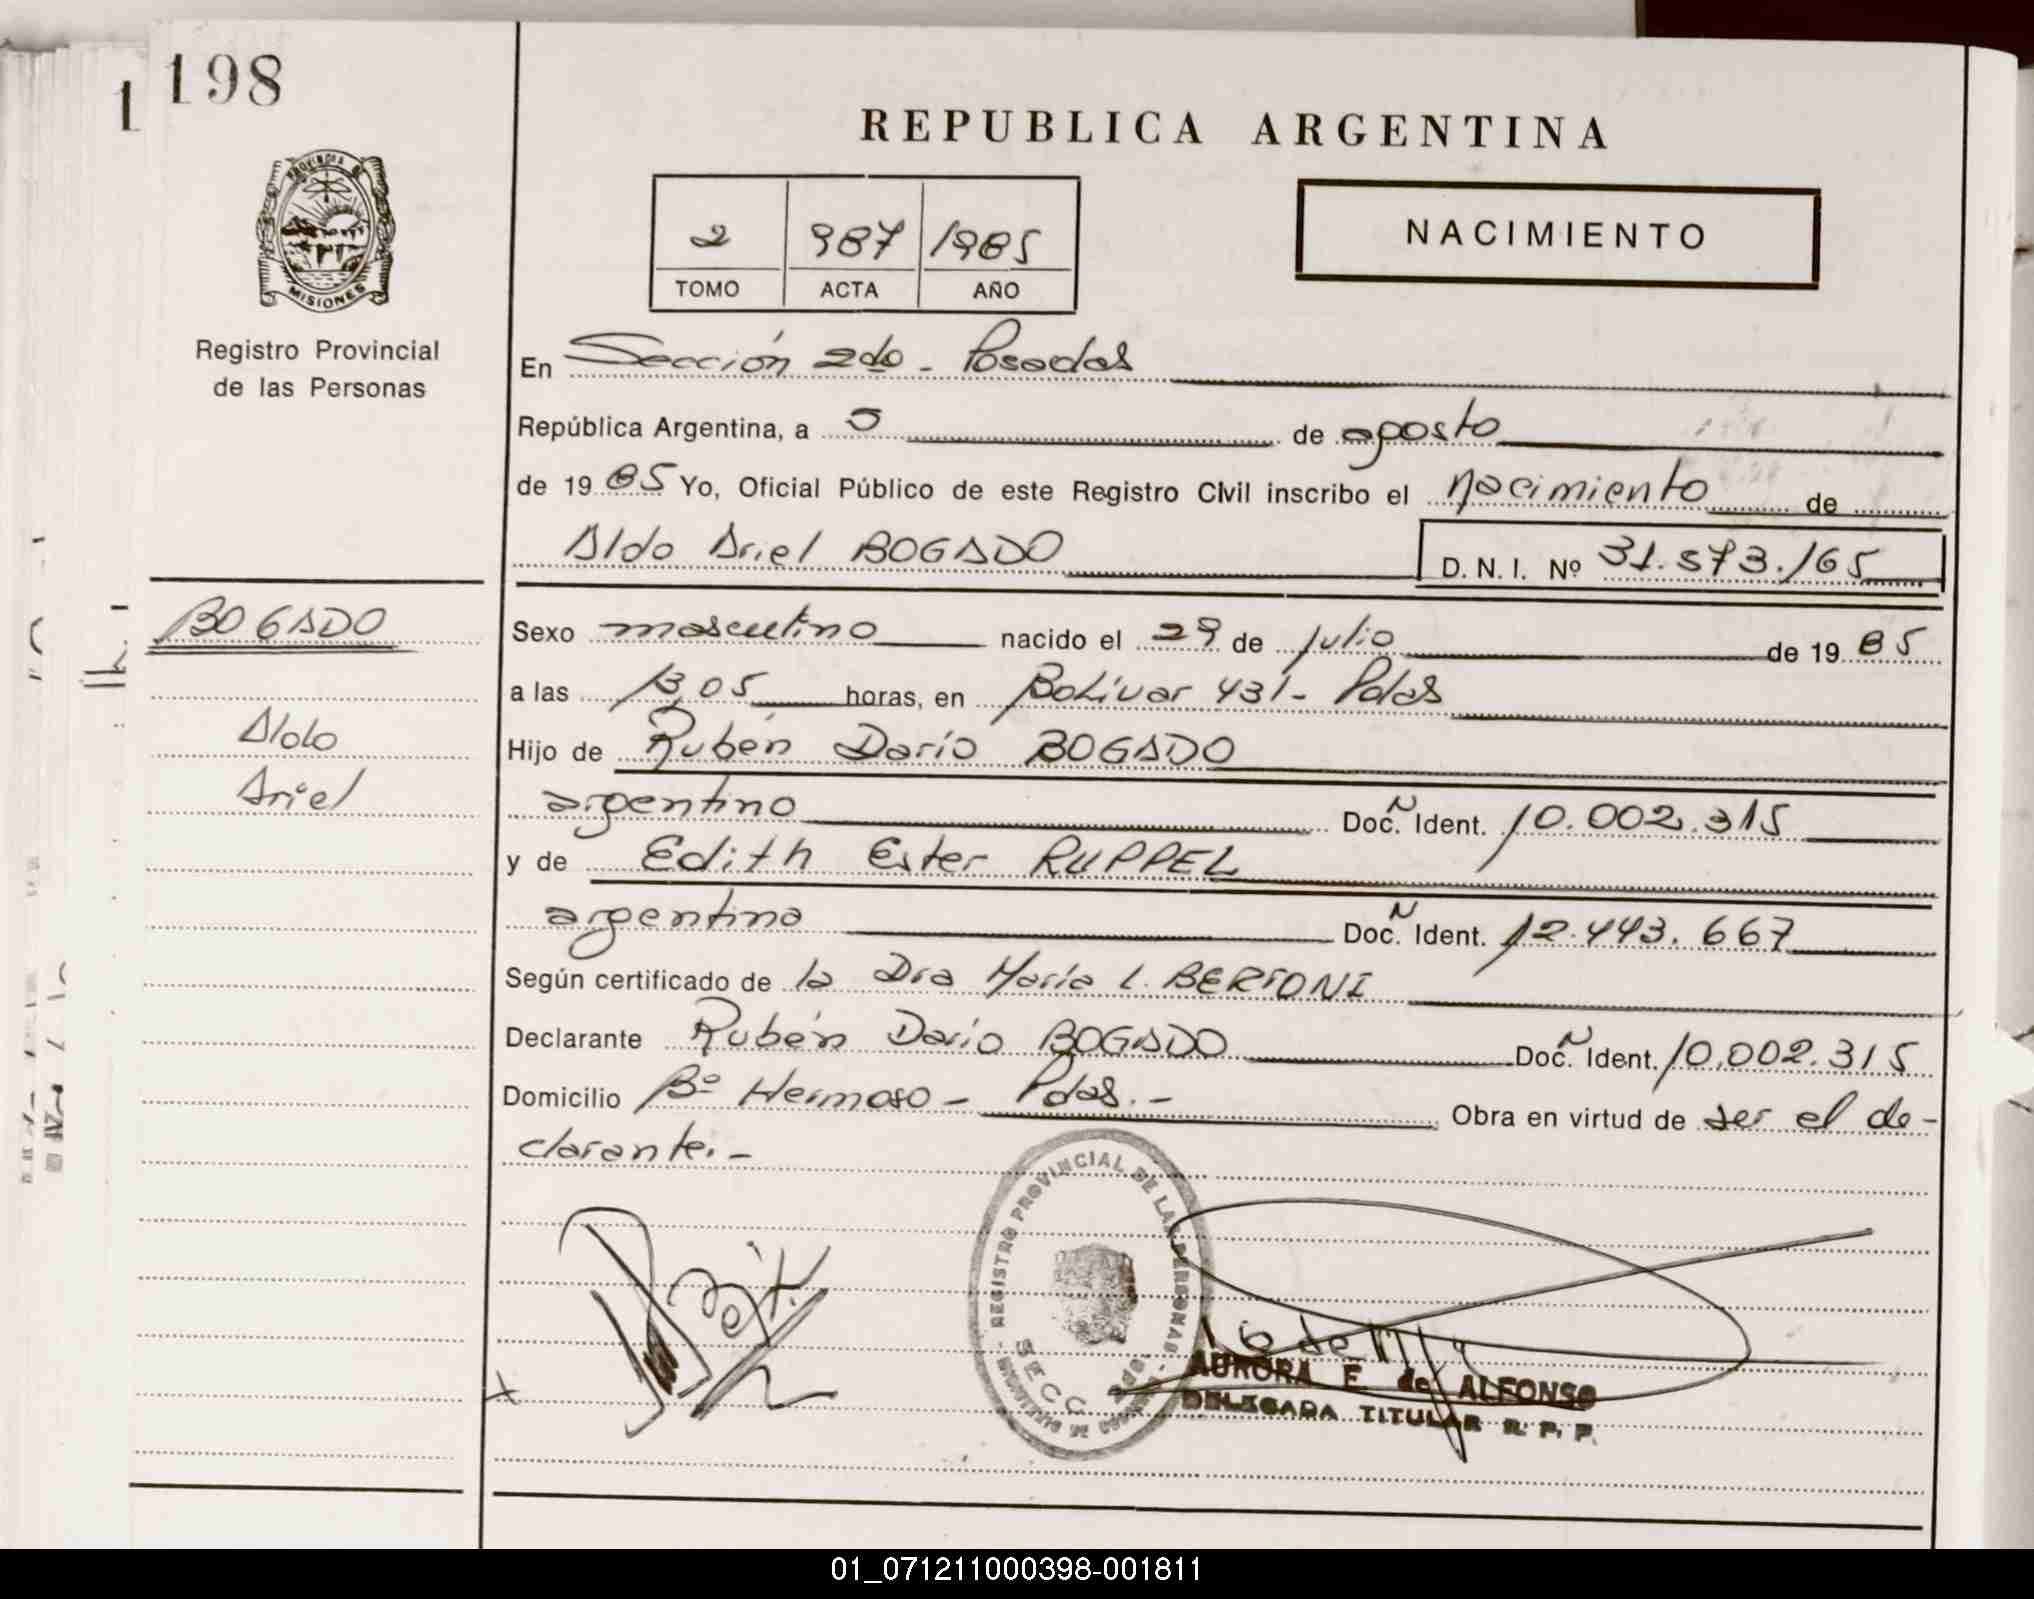 198
1
PROVINCIA DE
MISIONES
Registro Provincial
de las Personas
REPUBLICA ARGENTINA
2 987 1985
TOMO ACTA AÑO
NACIMIENTO
En Sección 2da - Posadas
República Argentina, a 5 de agosto
de 1985 Yo, Oficial Público de este Registro Civil inscribo el nacimiento de
Aldo Ariel BOGADO D. N. I. Nº 31.573.165
BOGADO
Aldo
Ariel
Sexo masculino nacido el 29 de julio de 1985
a las 13,05 horas, en Bolívar 431 - Pdas
Hijo de Rubén Darío BOGADO
argentino Doc. Ident. 10.002.315
y de Edith Ester RUPPEL
argentina Doc. Ident. 12.443.667
Según certificado de la Dra María L. BERTONI
Declarante Rubén Darío BOGADO Doc. Ident. 10.002.315
Domicilio Bº Hermoso - Pdas. - Obra en virtud de ser el de-
clarante. -
REGISTRO PROVINCIAL DE LAS PERSONAS
SECC
AURORA E de ALFONSO
DELEGADA TITULAR R. P. P.
01_071211000398-001811